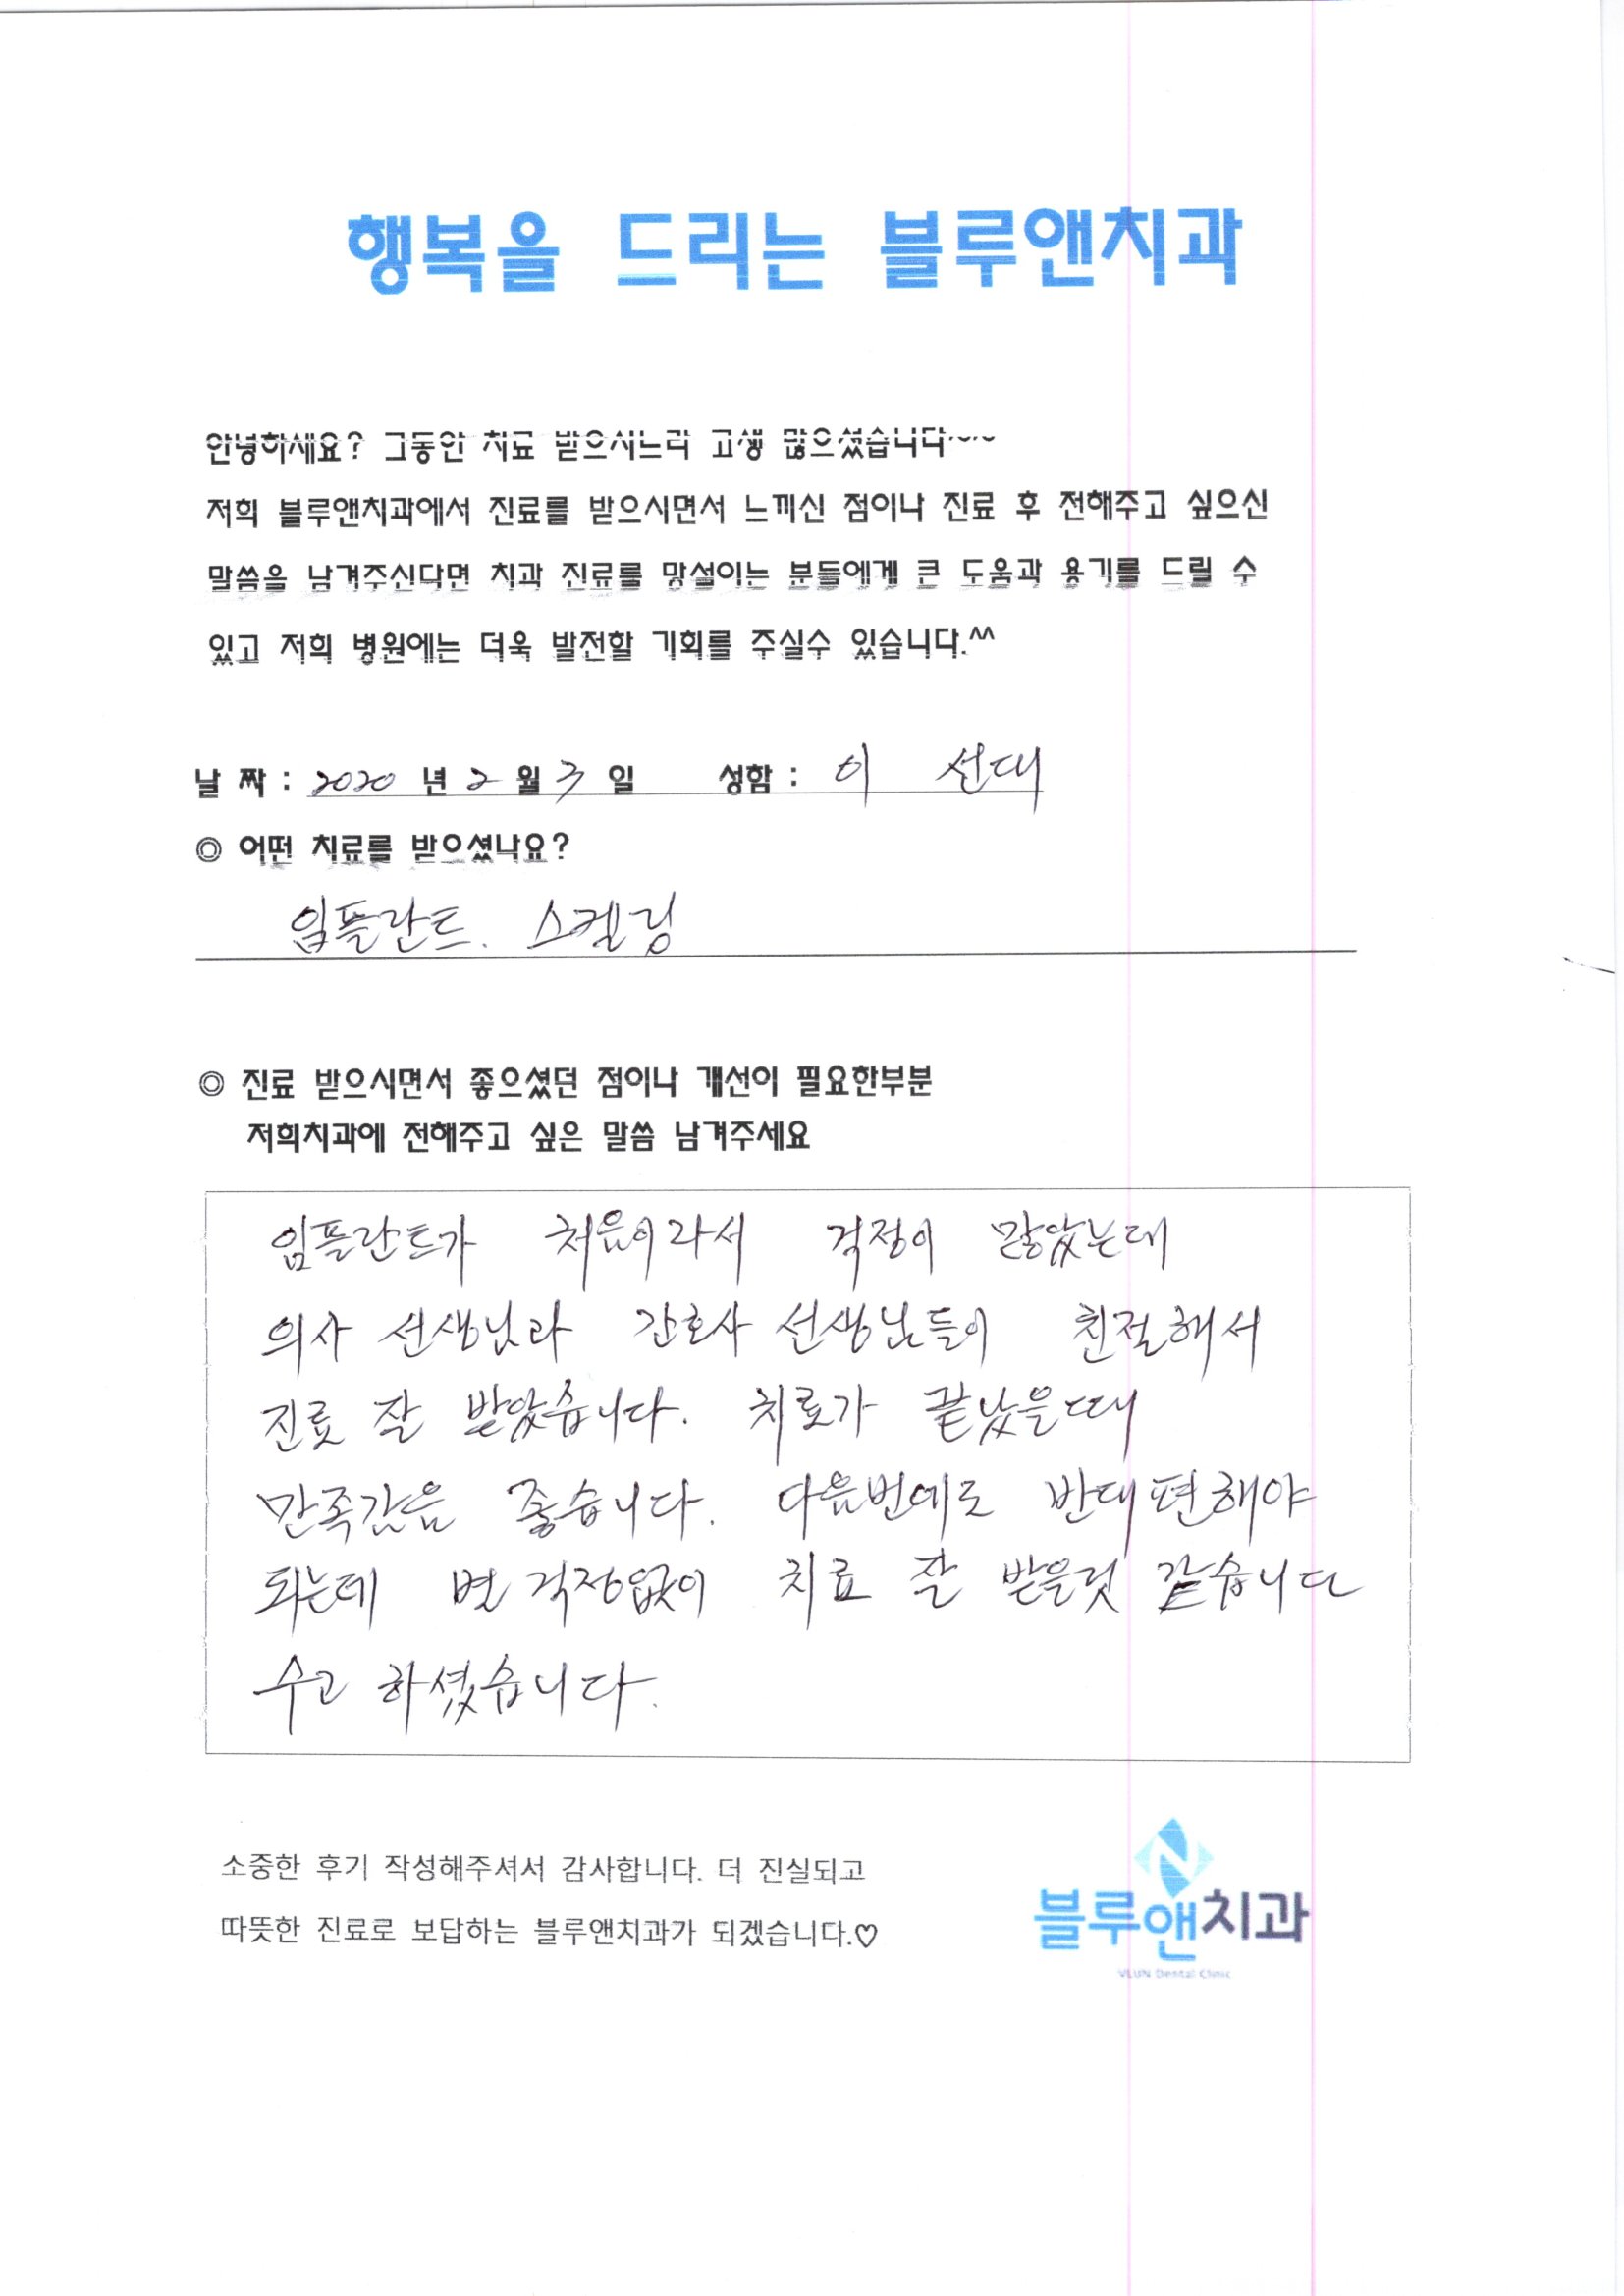 행복을 드리는 블루앤치과
안녕하세요? 그동안 치료 받으시느라 고생 많으셨습니다~~
저희 블루앤치과에서 진료를 받으시면서 느끼신 점이나 진료 후 전해주고 싶으신
말씀을 남겨주신다면 치과 진료를 망설이는 분들에게 큰 도움과 용기를 드릴 수
있고 저희 병원에는 더욱 발전할 기회를 주실수 있습니다.^^
날 짜 : 2020 년 2 월 3 일 성함 : 이 선대
◎ 어떤 치료를 받으셨나요?
임플란트. 스켈링
◎ 진료 받으시면서 좋으셨던 점이나 개선이 필요한부분
저희치과에 전해주고 싶은 말씀 남겨주세요
임플란트가 처음이라서 걱정이 많았는데
의사 선생님과 간호사 선생님들이 친절해서
진료 잘 받았습니다. 치료가 끝났을때
만족감음 좋습니다. 다음번에도 반대편해야
되는데 별 걱정없이 치료 잘 받을것 같습니다
수고 하셨습니다.
소중한 후기 작성해주셔서 감사합니다. 더 진실되고
따뜻한 진료로 보답하는 블루앤치과가 되겠습니다.♡
블루앤치과
VLUN Dental Clinic